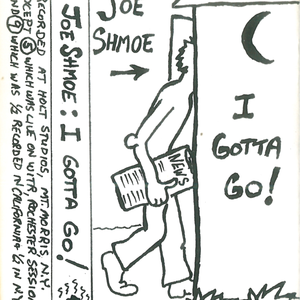 JOE
SHMOE
I
GOTTA
GO!
NEWS
JOE SHMOE: I GOTTA GO!
RECORDED AT HOLT STUDIOS, MT. MORRIS, N.Y.
XCEPT 5 WHICH WAS LIVE ON WITR, ROCHESTER SESSION
ND 9 WHICH WAS ½ RECORDED IN CALIFORNIA & ½ IN N.Y